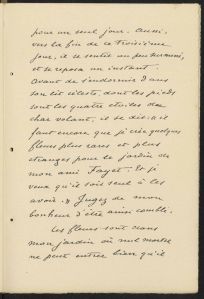 pour un seul jour. Aussi,
vers la fin de ce troisième
jour, il se sentit un peu surmené,
et se reposa un instant.
Avant de s'endormir dans
son lit céleste, dont les pieds
sont les quatre étoiles du
char volant, il se dit: « il
faut encore que je crée quelques
fleurs plus rares et plus
étranges pour le jardin de
mon ami Fayet. Et je
veux qu'il soit seul à les
avoir. » Jugez de mon
bonheur d'être ainsi comblé.
Les fleurs sont dans
mon jardin où nul mortel
ne peut entrer bien qu'il